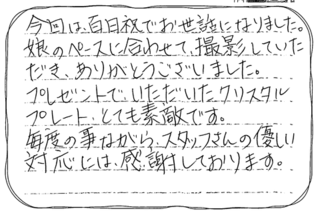 今回は、百日祝でお世話になりました。
娘のペースに合わせて、撮影していた
だき、ありがとうございました。
プレゼントで、いただいたクリスタル
プレート、とても素敵です。
毎度の事ながら、スタッフさんの優しい
対応には、感謝しております。